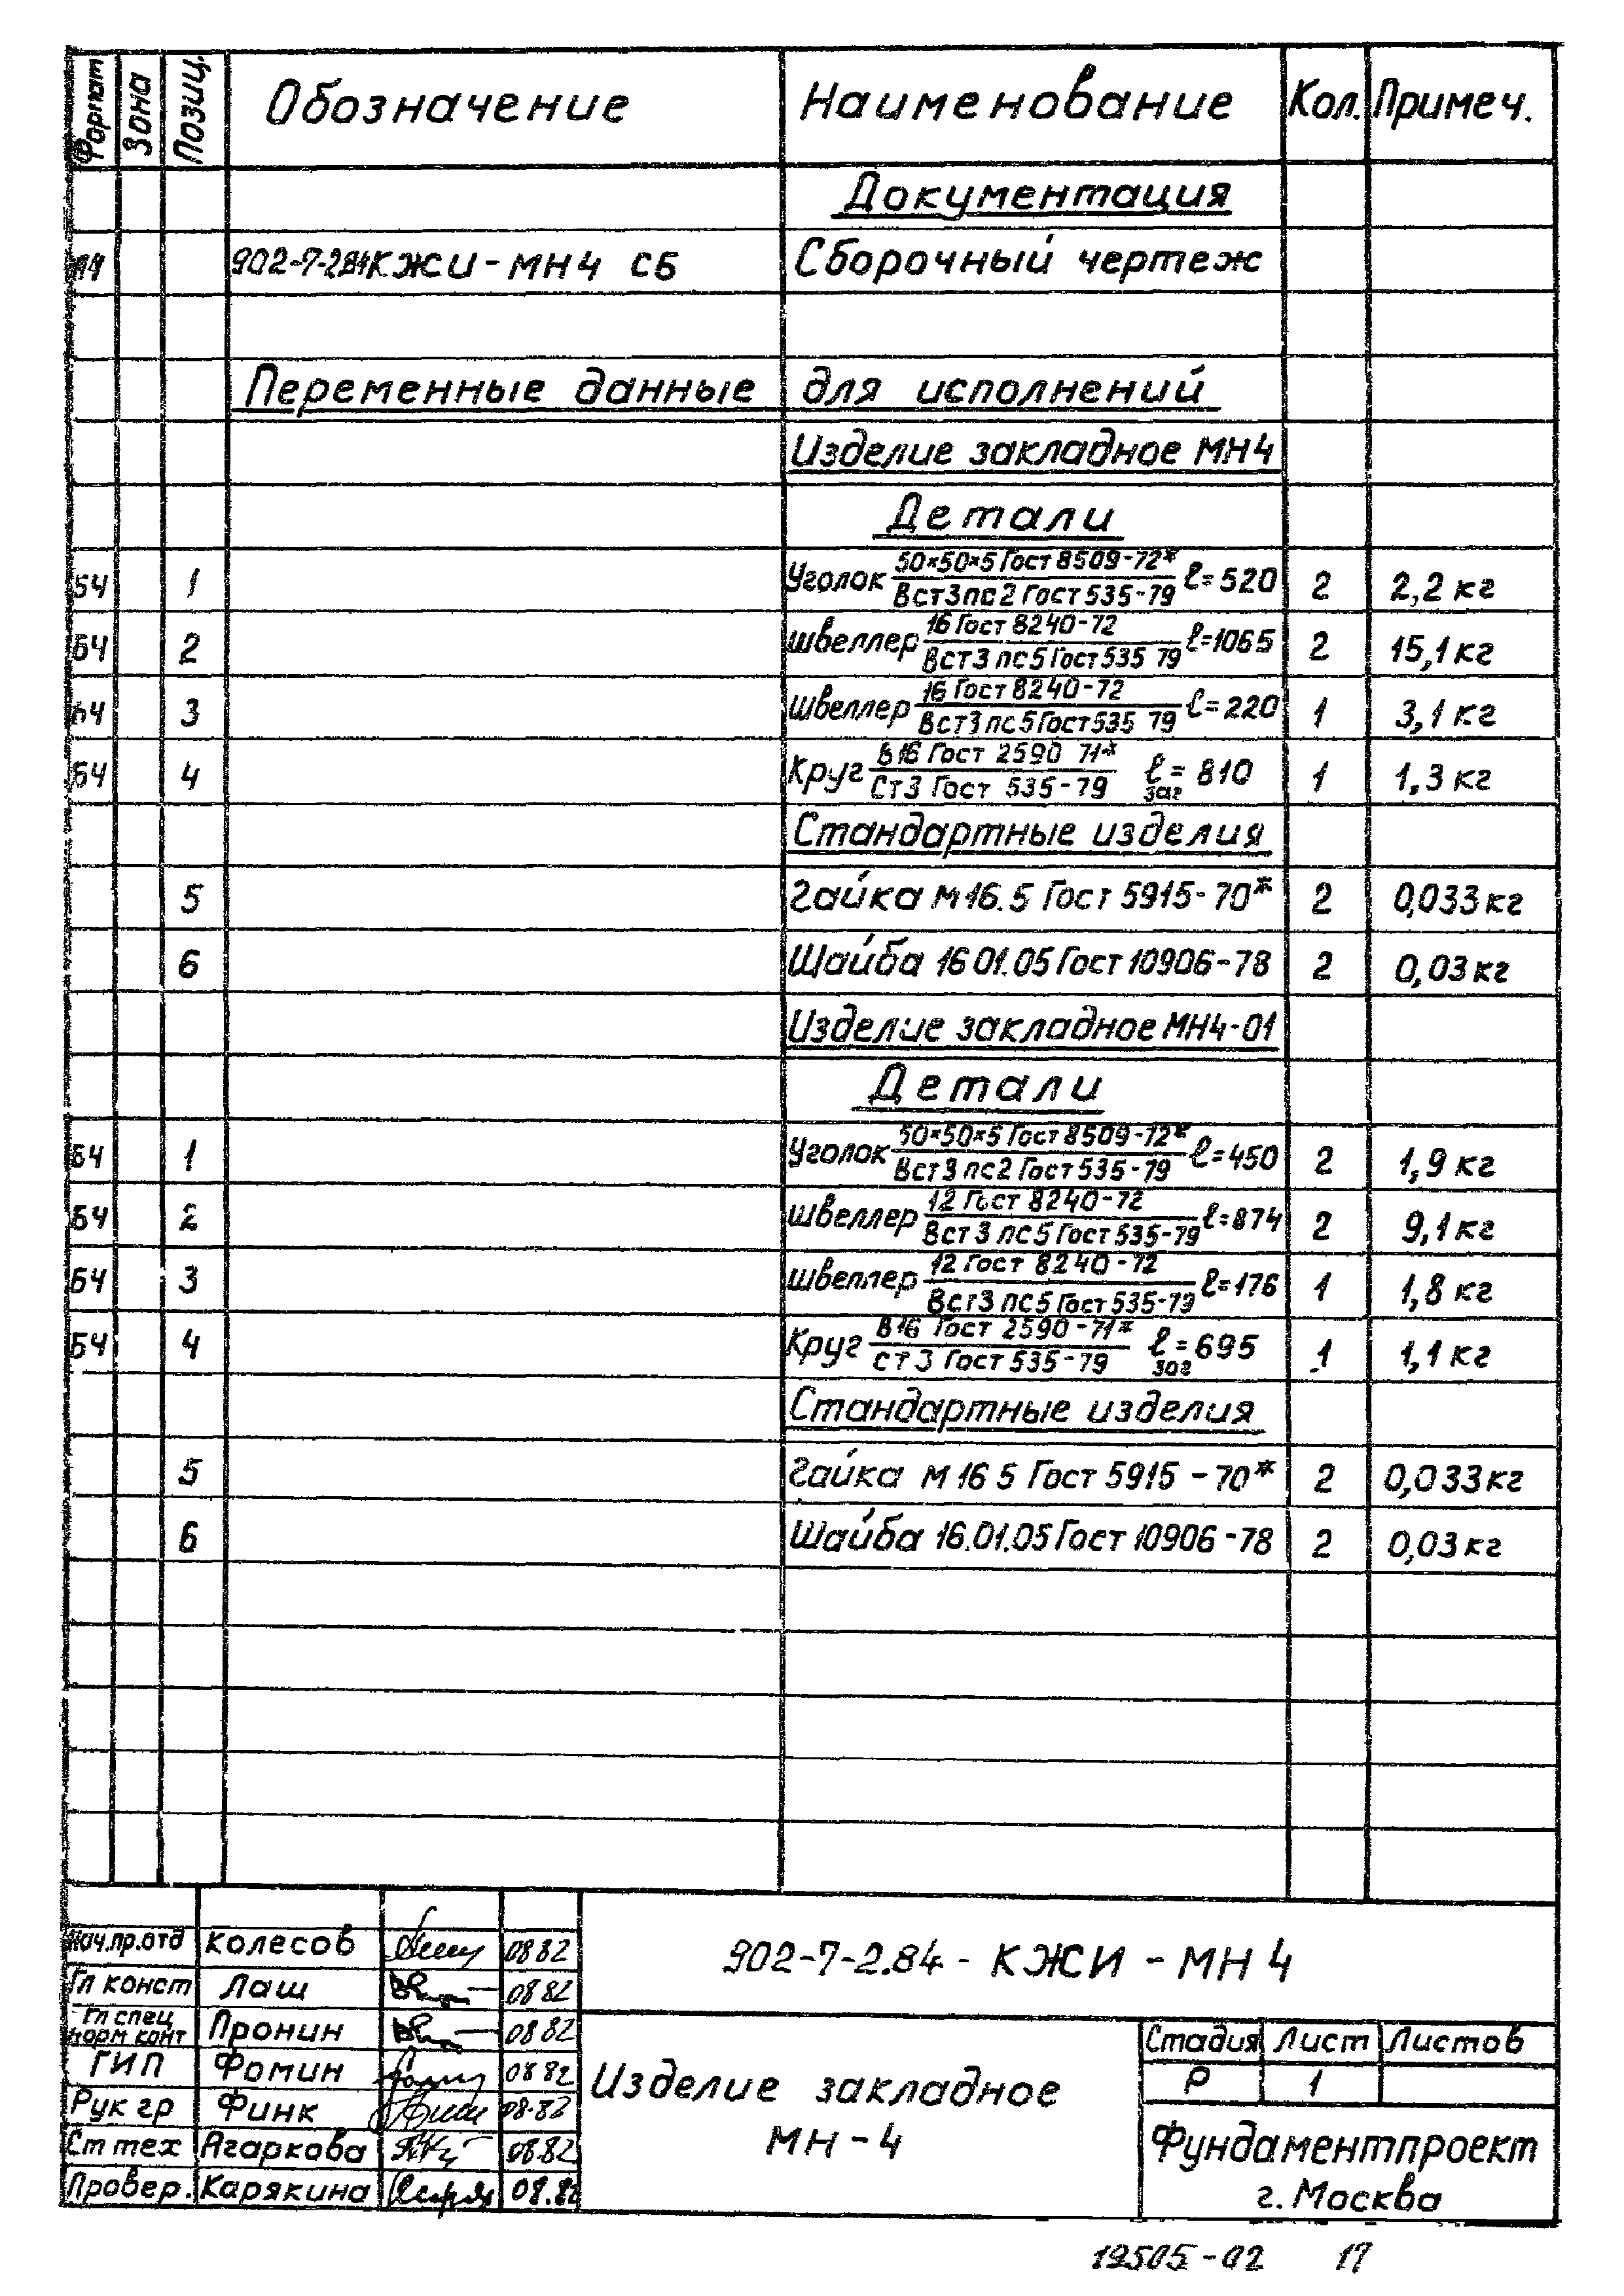 Формат Зона Позиц. Обозначение Наименование Кол. Примеч.
Документация
902-7-2.84КЖИ-МН4 СБ Сборочный чертеж
Переменные данные для исполнений
Изделие закладное МН4
Детали
БЧ 1 Уголок 50×50×5 Гост 8509-72* / Вст3пс2 Гост 535-79 ℓ=520 2 2,2 кг
БЧ 2 Швеллер 16 Гост 8240-72 / Вст3 пс5 Гост 535 79 ℓ=1065 2 15,1 кг
БЧ 3 Швеллер 16 Гост 8240-72 / Вст3 пс5 Гост 535 79 ℓ=220 1 3,1 кг
БЧ 4 Круг В16 Гост 2590 71* / Ст3 Гост 535-79 ℓзаг=810 1 1,3 кг
Стандартные изделия
5 Гайка М16.5 Гост 5915-70* 2 0,033 кг
6 Шайба 16 01.05 Гост 10906-78 2 0,03 кг
Изделие закладное МН4-01
Детали
БЧ 1 Уголок 50×50×5 Гост 8509-72* / Вст3 пс2 Гост 535-79 ℓ=450 2 1,9 кг
БЧ 2 Швеллер 12 Гост 8240-72 / Вст3 пс5 Гост 535-79 ℓ=874 2 9,1 кг
БЧ 3 Швеллер 12 Гост 8240-72 / Вст3 пс5 Гост 535-79 ℓ=176 1 1,8 кг
БЧ 4 Круг В16 Гост 2590-71* / Ст3 Гост 535-79 ℓзаг=695 1 1,1 кг
Стандартные изделия
5 Гайка М16 5 Гост 5915-70* 2 0,033 кг
6 Шайба 16.01.05 Гост 10906-78 2 0,03 кг
Нач.пр.отд Колесов 08 82
Гл конст Лаш 08 82
Гл спец
норм конт Пронин 08 82
ГИП Фомин 08 82
Рук гр Финк 08-82
Ст тех Агаркова 08.82
Провер. Карякина 08.82
902-7-2.84 - КЖИ - МН 4
Изделие закладное
МН-4
Стадия Лист Листов
Р 1
Фундаментпроект
г. Москва
19505-02 17